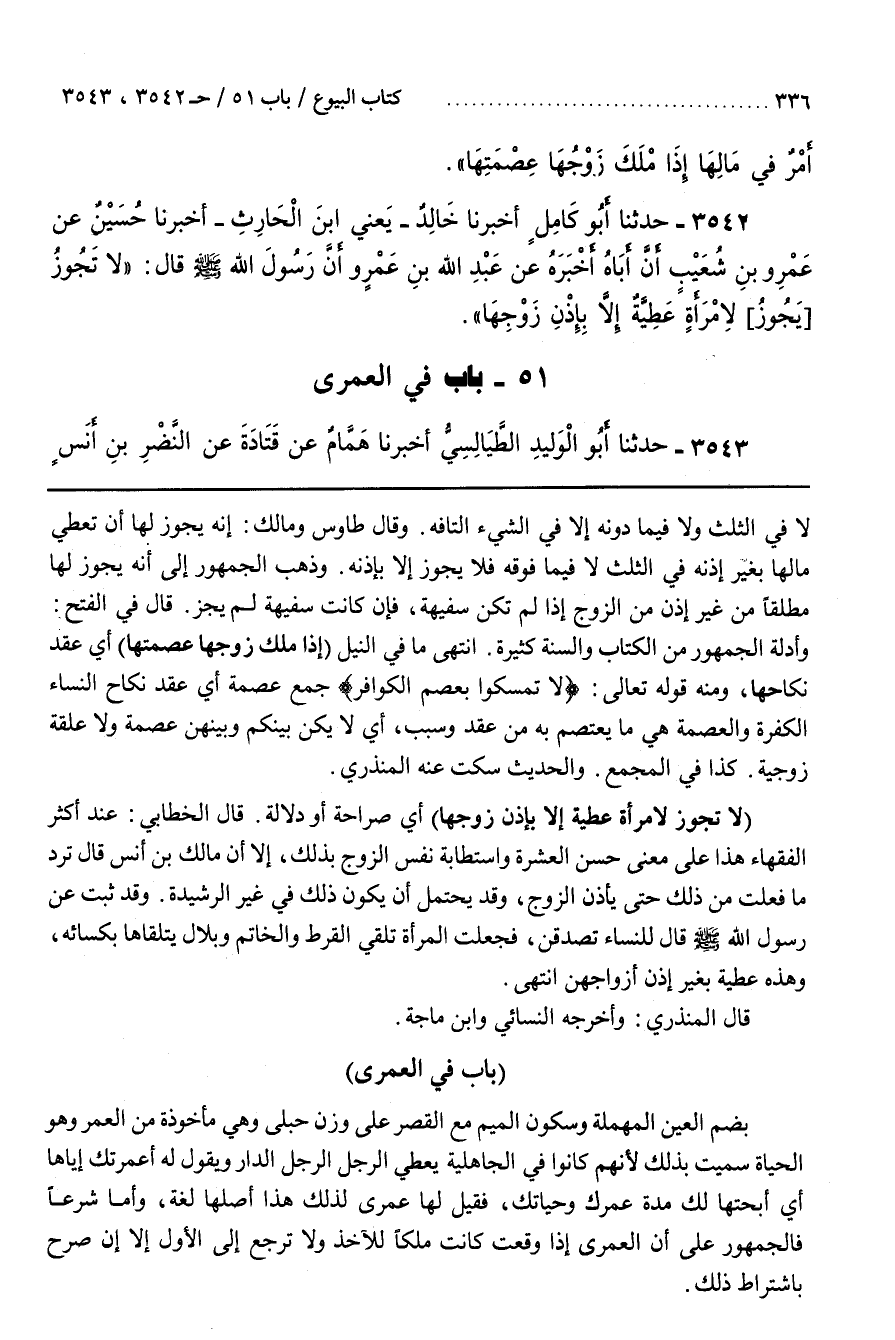 ٣٣٦ ..................................... كتاب البيوع / باب ٥١ / حـ ٣٥٤٢ ، ٣٥٤٣
أَمْرٌ في مَالِهَا إِذَا مْلَكَ زَوْجُهَا عِصْمَتِهَا».
٣٥٤٢ ـ حدثنا أَبُو كَامِلٍ أخبرنا خَالِدٌ ـ يَعني ابنَ الْحَارِثِ ـ أخبرنا حُسَيْنٌ عن
عَمْرِو بنِ شُعَيْبٍ أَنَّ أَبَاهُ أَخْبَرَهُ عن عَبْدِ الله بنِ عَمْرٍو أَنَّ رَسُولَ الله ﷺ قال: «لا تَجُوزُ
[يَجُوزُ] لِامْرَأَةٍ عَطِيَّةٌ إِلَّا بِإِذْنِ زَوْجِهَا».
٥١ ـ باب في العمرى
٣٥٤٣ ـ حدثنا أَبُو الْوَلِيدِ الطَّيَالِسِيُّ أخبرنا هَمَّامٌ عن قَتَادَةَ عن النَّضْرِ بنِ أَنَسٍ
لا في الثلث ولا فيما دونه إلا في الشيء التافه. وقال طاوس ومالك: إنه يجوز لها أن تعطي
مالها بغير إذنه في الثلث لا فيما فوقه فلا يجوز إلا بإذنه. وذهب الجمهور إلى أنه يجوز لها
مطلقاً من غير إذن من الزوج إذا لم تكن سفيهة، فإن كانت سفيهة لـم يجز. قال في الفتح:
وأدلة الجمهور من الكتاب والسنة كثيرة. انتهى ما في النيل (إذا ملك زوجها عصمتها) أي عقد
نكاحها، ومنه قوله تعالى: ﴿لا تمسكوا بعصم الكوافر﴾ جمع عصمة أي عقد نكاح النساء
الكفرة والعصمة هي ما يعتصم به من عقد وسبب، أي لا يكن بينكم وبينهن عصمة ولا علقة
زوجية. كذا في المجمع. والحديث سكت عنه المنذري.
(لا تجوز لامرأة عطية إلا بإذن زوجها) أي صراحة أو دلالة. قال الخطابي: عند أكثر
الفقهاء هذا على معنى حسن العشرة واستطابة نفس الزوج بذلك، إلا أن مالك بن أنس قال ترد
ما فعلت من ذلك حتى يأذن الزوج، وقد يحتمل أن يكون ذلك في غير الرشيدة. وقد ثبت عن
رسول الله ﷺ قال للنساء تصدقن، فجعلت المرأة تلقي القرط والخاتم وبلال يتلقاها بكسائه،
وهذه عطية بغير إذن أزواجهن انتهى.
قال المنذري: وأخرجه النسائي وابن ماجة.
(باب في العمرى)
بضم العين المهملة وسكون الميم مع القصر على وزن حبلى وهي مأخوذة من العمر وهو
الحياة سميت بذلك لأنهم كانوا في الجاهلية يعطي الرجل الرجل الدار ويقول له أعمرتك إياها
أي أبحتها لك مدة عمرك وحياتك، فقيل لها عمرى لذلك هذا أصلها لغة، وأمـا شرعـاً
فالجمهور على أن العمرى إذا وقعت كانت ملكاً للآخذ ولا ترجع إلى الأول إلا إن صرح
باشتراط ذلك.